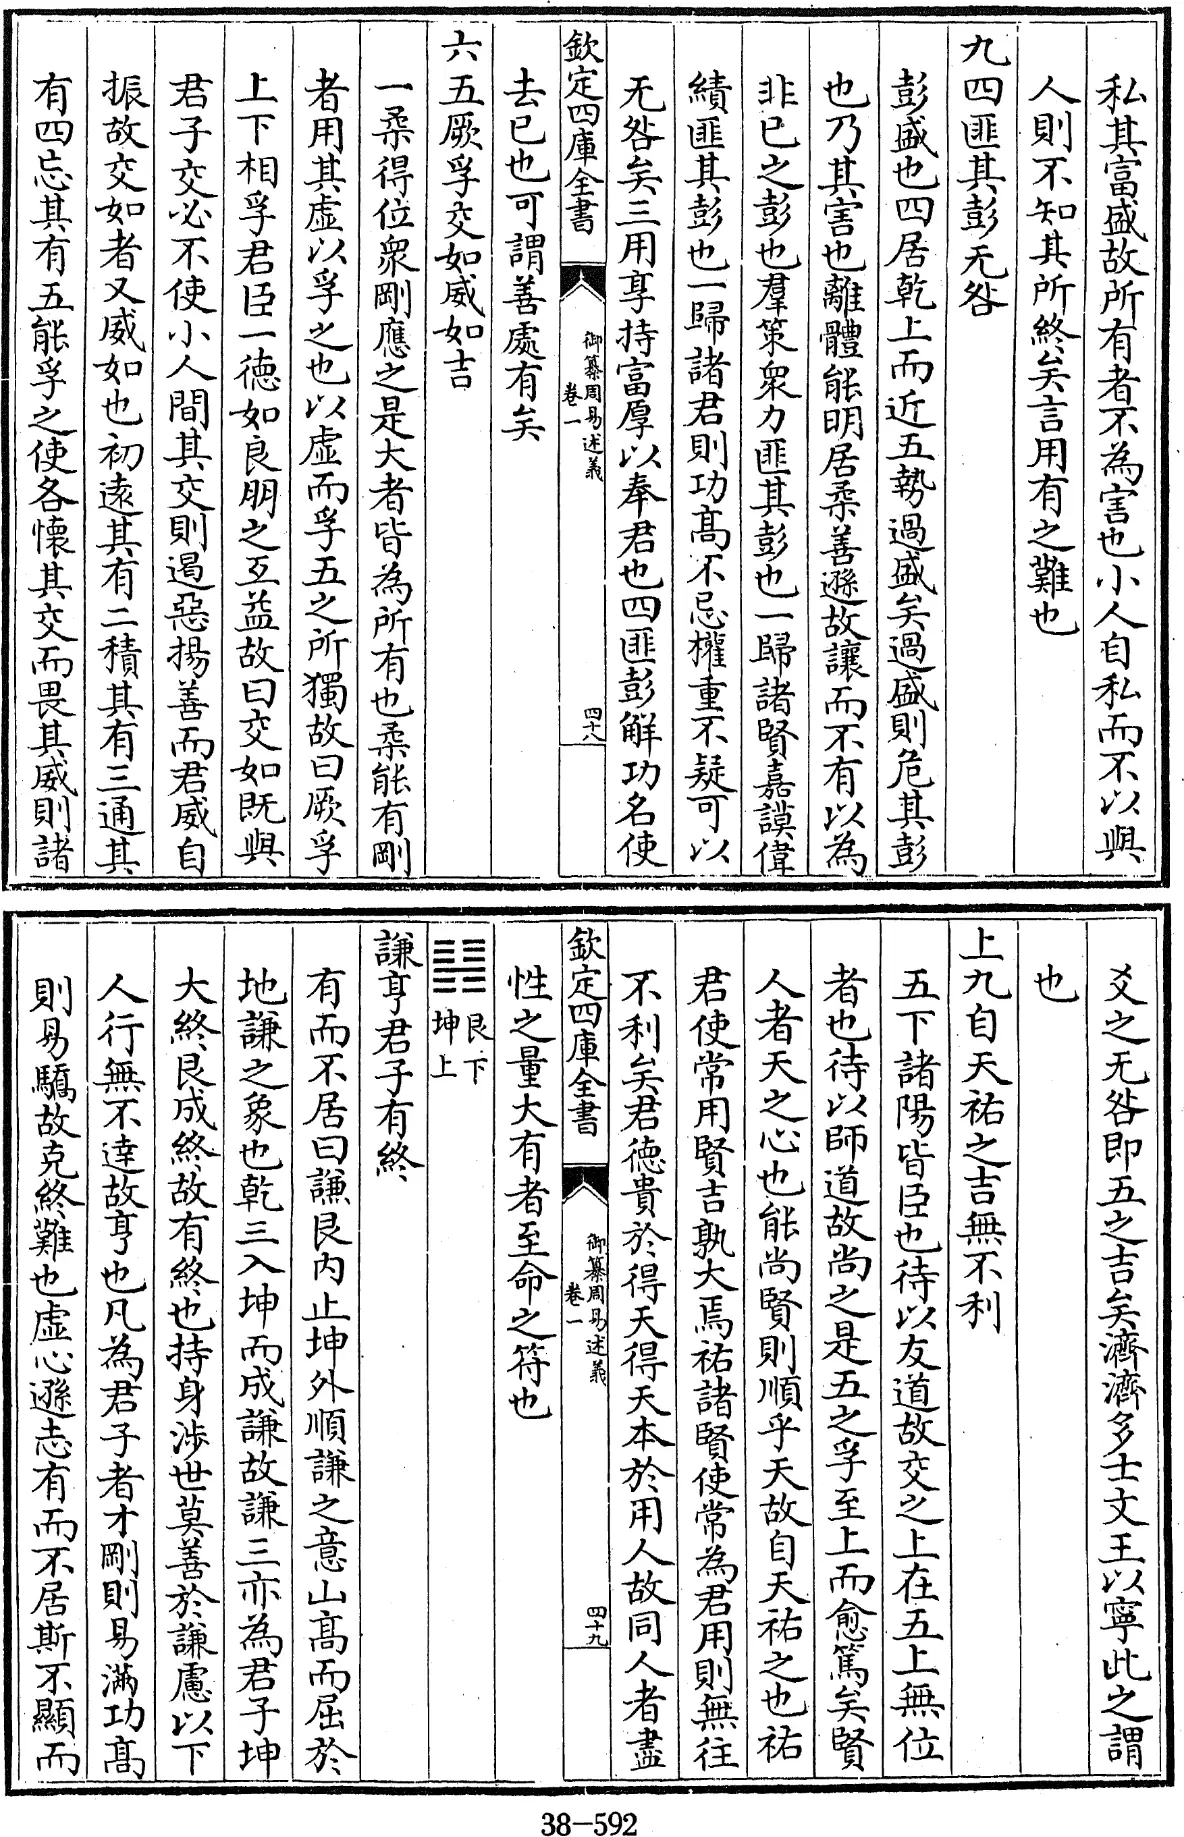 私其富盛故所有者不為害也小人自私而不以與
人則不知其所終矣言用有之難也
九四匪其彭无咎
彭盛也四居乾上而近五勢過盛矣過盛則危其彭
也乃其害也離體能明居柔善遜故讓而不有以為
非已之彭也羣策衆力匪其彭也一歸諸賢嘉謨偉
績匪其彭也一歸諸君則功髙不忌權重不疑可以
无咎矣三用享持富厚以奉君也四匪彭解功名使
欽定四庫全書
御纂周易述義
卷一
四十八
去已也可謂善處有矣
六五厥孚交如威如吉
一柔得位衆剛應之是大者皆為所有也柔能有剛
者用其虛以孚之也以虛而孚五之所獨故曰厥孚
上下相孚君臣一德如良朋之互益故曰交如既與
君子交必不使小人間其交則遏惡揚善而君威自
振故交如者又威如也初遠其有二積其有三通其
有四忘其有五能孚之使各懷其交而畏其威則諸
爻之无咎即五之吉矣濟濟多士文王以寧此之謂
也
上九自天祐之吉無不利
五下諸陽皆臣也待以友道故交之上在五上無位
者也待以師道故尚之是五之孚至上而愈篤矣賢
人者天之心也能尚賢則順乎天故自天祐之也祐
君使常用賢吉孰大焉祐諸賢使常為君用則無往
不利矣君德貴於得天得天本於用人故同人者盡
欽定四庫全書
御纂周易述義
卷一
四十九
性之量大有者至命之符也
䷎艮下坤上
謙亨君子有終
有而不居曰謙艮內止坤外順謙之意山髙而屈於
地謙之象也乾三入坤而成謙故謙三亦為君子坤
大終艮成終故有終也持身涉世莫善於謙慮以下
人行無不達故亨也凡為君子者才剛則易滿功髙
則易驕故克終難也虛心遜志有而不居斯不顯而
38-592